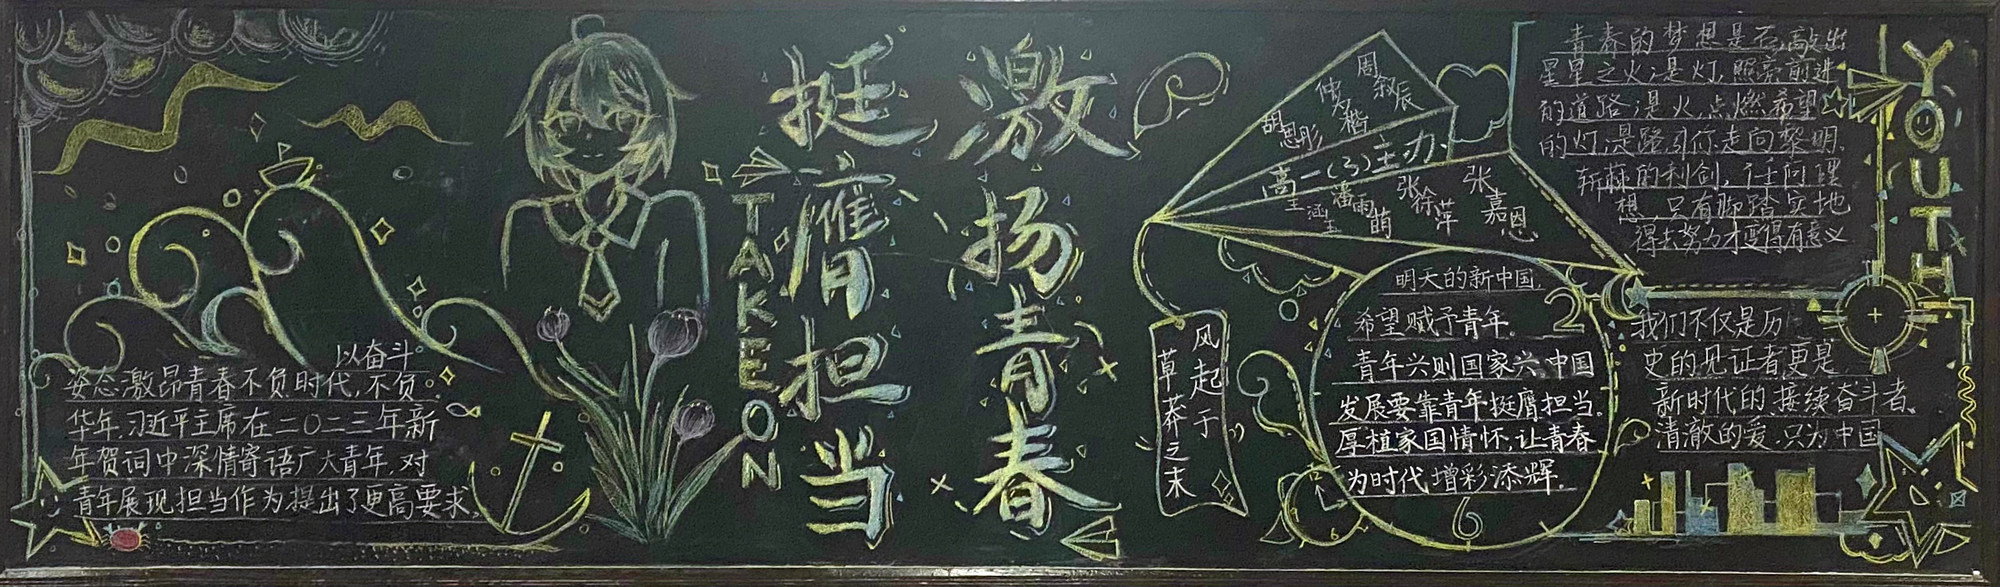 以奋斗
姿态激昂青春不负时代,不负
华年.习近平主席在二〇二三年新
年贺词中深情寄语广大青年.对
青年展现担当作为提出了更高要求.
TAKE ON
挺膺担当
激扬青春
周叙辰
仲梦楷
胡思彤
高一(3)主办
王涵玉
潘雨萌
张徐萍
张嘉恩
风起于
草莽之末
明天的新中国.
希望赋予青年.
青年兴则国家兴.中国
发展要靠青年挺膺担当.
厚植家国情怀,让青春
为时代增彩添辉.
2
6
12
6
青春的梦想是否敲出
星星之火是灯,照亮前进
的道路是火,点燃希望
的灯是路引你走向黎明.
斩棘的利剑,任何理
想,只有脚踏实地
得去努力才变得有意义
我们不仅是历
史的见证者更是
新时代的接续奋斗者.
清澈的爱.只为中国
YOUTH